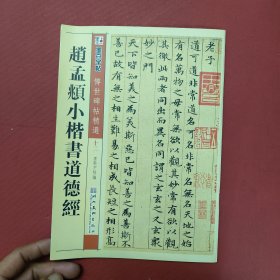 趙孟頫小楷書道德經
墨點字帖
傳世碑帖精選
老子
道可道非常道名可名非常名無名天地之始
有名萬物之母常無欲以觀其妙常有欲以觀
其徼此兩者同出而異名同謂之玄玄之又玄衆
妙之門
天下皆知美之為美斯惡已皆知善之為善斯不
善已故有無之相生難易之相成長短之相形高